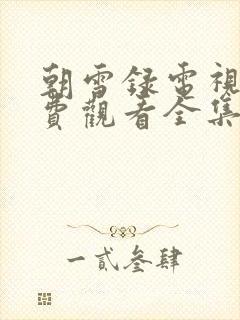 朝雪録電視
費觀看全集
一貳叁肆